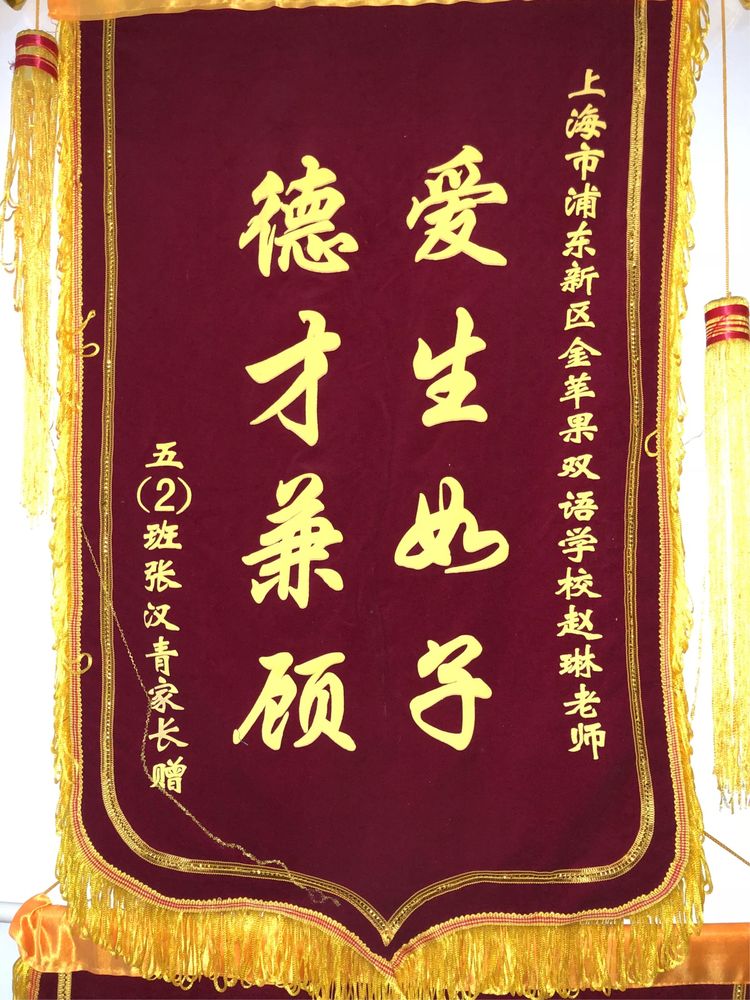 上海市浦东新区金苹果双语学校赵琳老师
爱生如子
德才兼顾
五(2)班张汉青家长赠